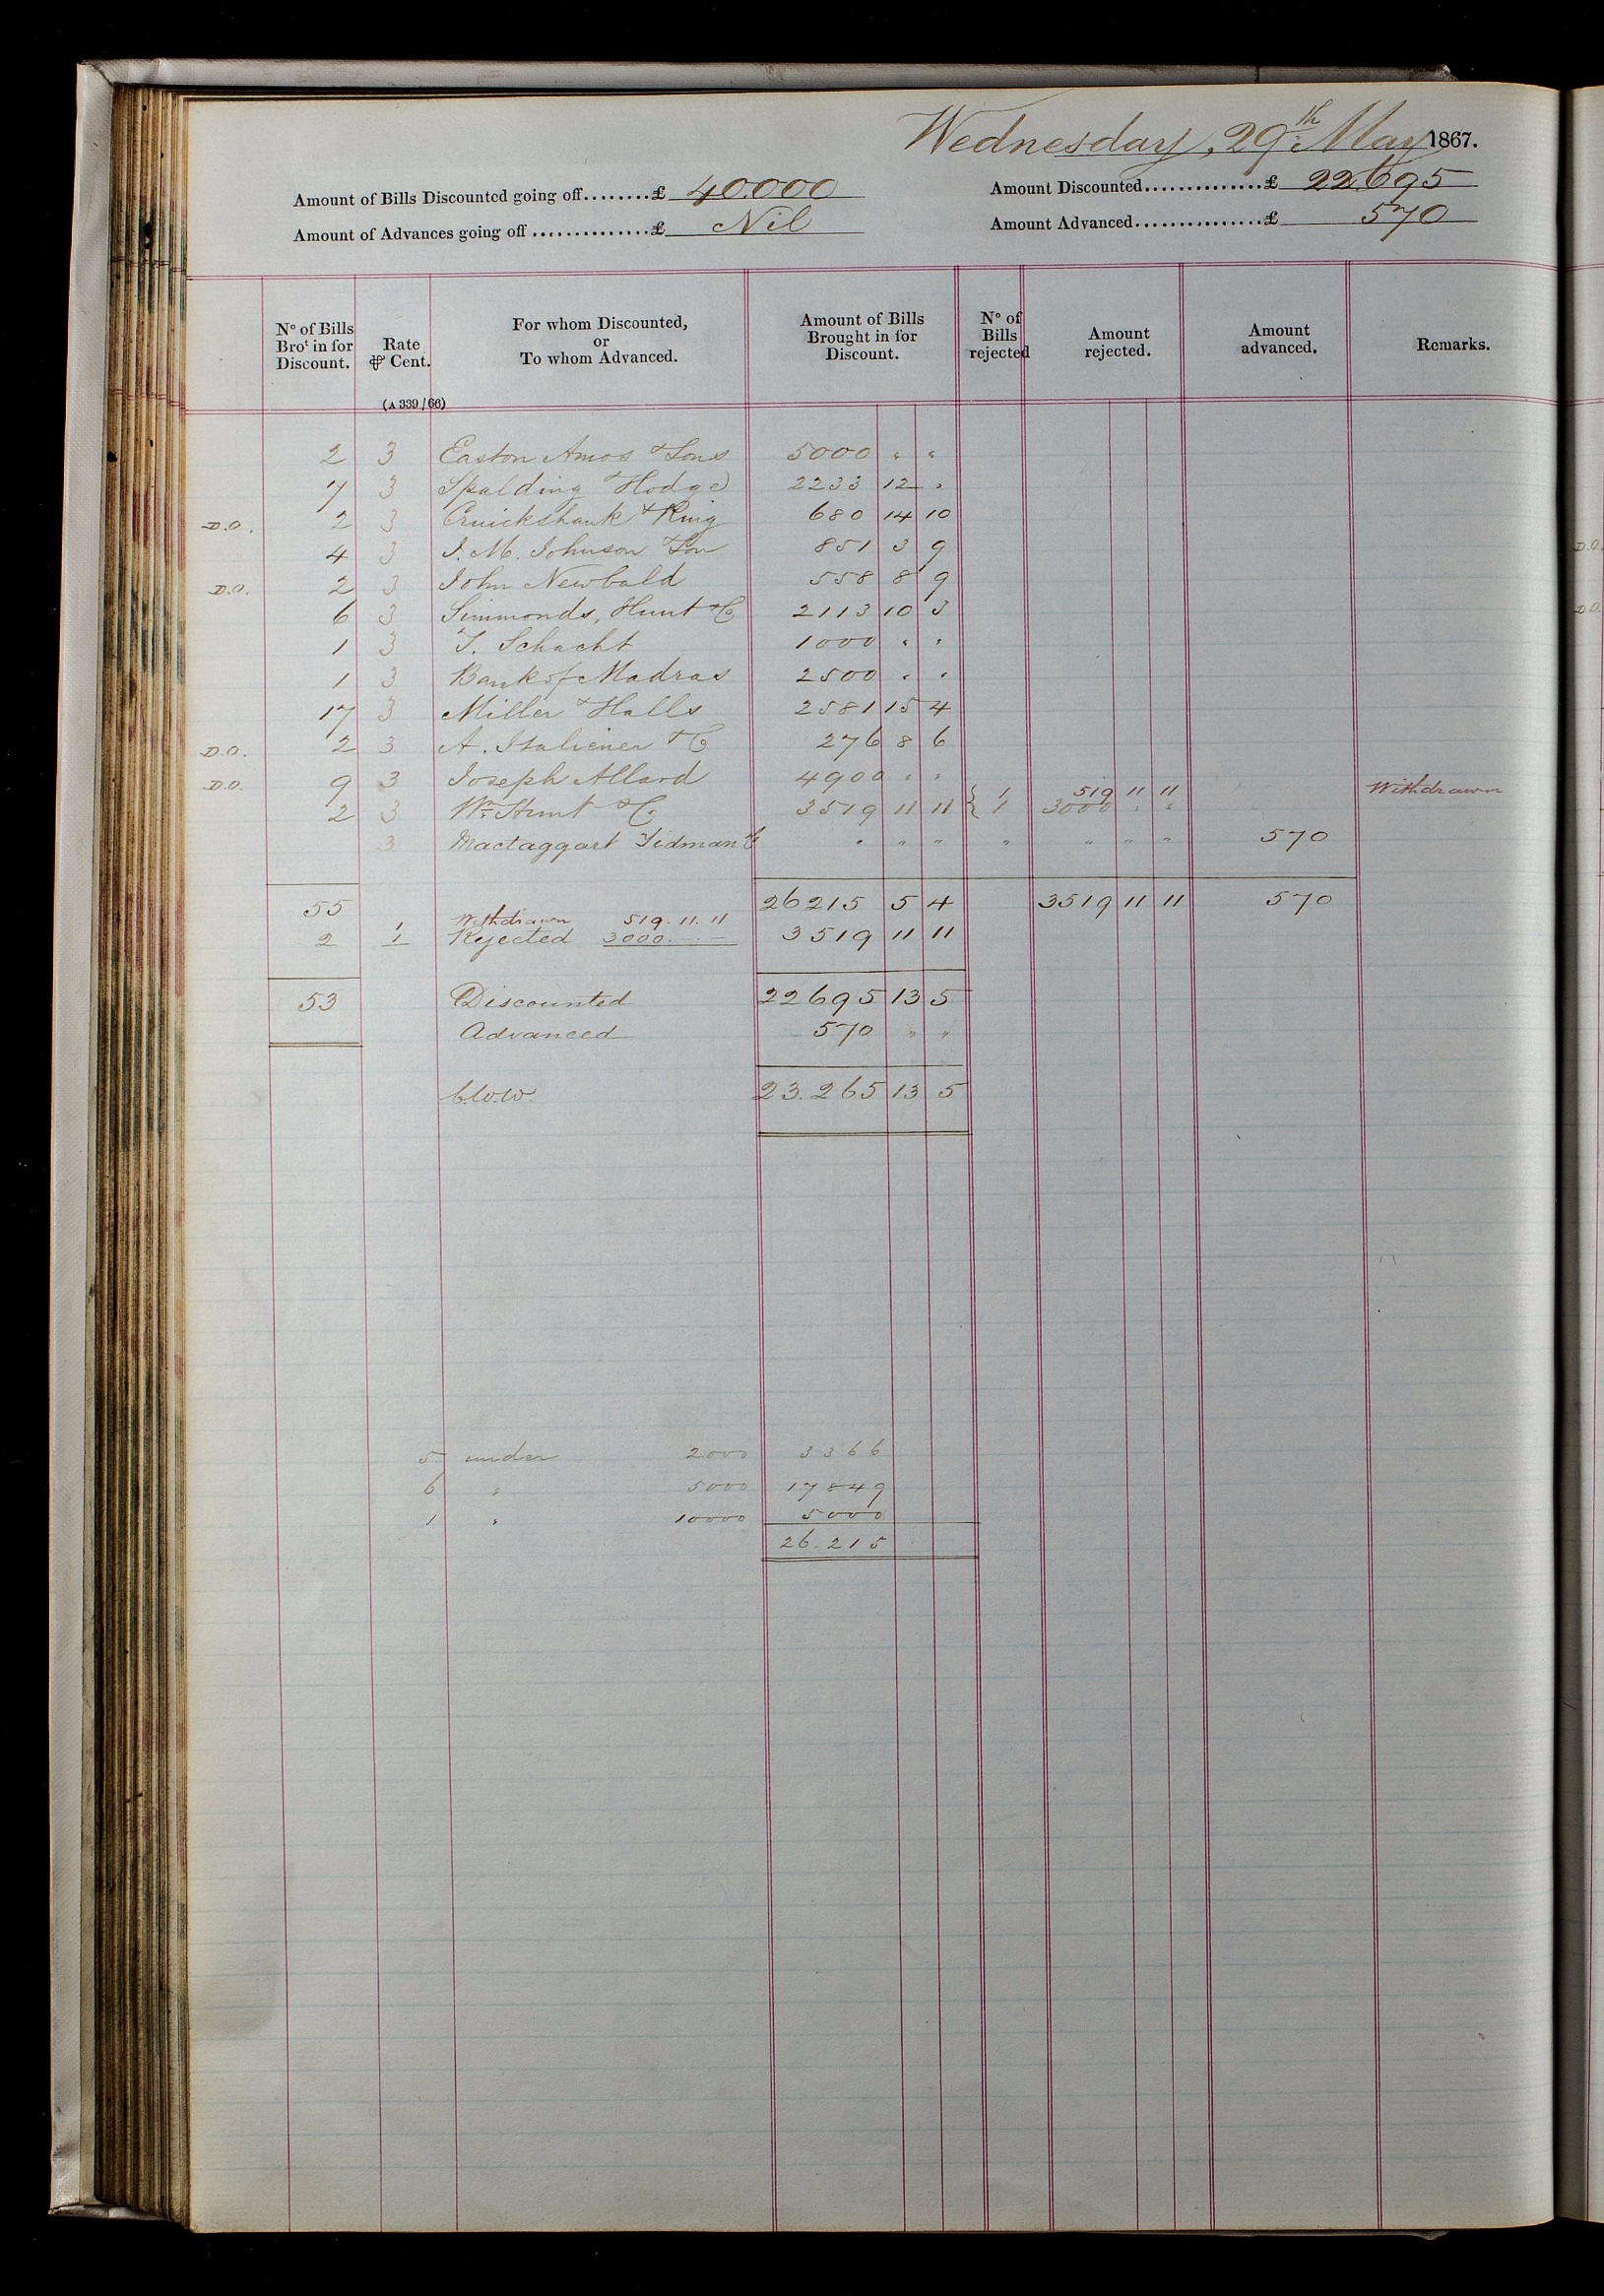 Wednesday, 29th May 1867.
Amount of Bills Discounted going off........£ 40.000 Amount Discounted..............£ 22.695
Amount of Advances going off ..............£ Nil Amount Advanced...............£ 570
No of Bills Brot in for Discount. Rate ⅌ Cent. For whom Discounted, or To whom Advanced. Amount of Bills Brought in for Discount. No of Bills rejected Amount rejected. Amount advanced. Remarks.
(A 339/66)
2 3 Easton Amos & Sons 5000 " "
7 3 Spalding & Hodge 2233 12 "
D.O. 2 3 Cruickshank & King 680 14 10
4 3 J. M. Johnson & Son 851 3 9
D.O. 2 3 John Newbald 558 8 9
6 3 Simmonds, Hunt & Co 2113 10 3
1 3 T. Schacht 1000 " "
1 3 Bank of Madras 2500 " "
17 3 Miller & Halls 2581 15 4
D.O. 2 3 A. Italiener & Co 276 8 6
D.O. 9 3 Joseph Allard 4900 " "
1 519 11 11 Withdrawn
2 3 Wm Hunt & Co 3519 11 11 { 1 3000 " "
3 Mactaggart Tidman & Co " " " " " " " 570
55 26215 5 4 3519 11 11 570
1 Withdrawn 519.11.11
2 1 Rejected 3000.-.- 3519 11 11
53 Discounted 22695 13 5
Advanced 570 " "
23.265 13 5
5 under 2000 3366
6 " 5000 17849
1 " 10000 5000
26.215
D.O.
D.O.